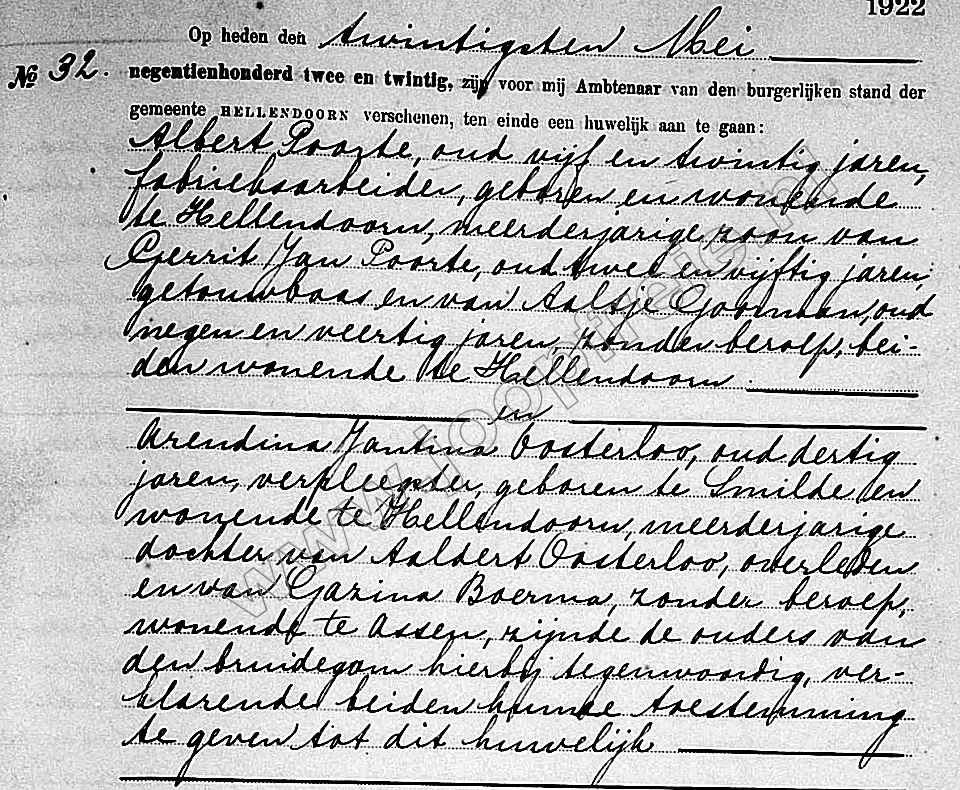 1922
Op heden den twintigsten Mei
No 32.
negentienhonderd twee en twintig, zijn voor mij Ambtenaar van den burgerlijken stand der
gemeente HELLENDOORN verschenen, ten einde een huwelijk aan te gaan:
Albert Poorte, oud vijf en twintig jaren,
fabrieksarbeider, geboren en wonende
te Hellendoorn, meerderjarige zoon van
Gerrit Jan Poorte, oud twee en vijftig jaren,
getouwbaas en van Aaltje Goorman, oud
negen en veertig jaren, zonder beroep, bei-
den wonende te Hellendoorn.
en
Arendina Jantina Oosterloo, oud dertig
jaren, verpleegster, geboren te Smilde en
wonende te Hellendoorn, meerderjarige
dochter van Aaldert Oosterloo, overleden
en van Gazina Boerma, zonder beroep,
wonende te Assen, zijnde de ouders van
den bruidegom hierbij tegenwoordig, ver-
klarende beiden hunne toestemming
te geven tot dit huwelijk